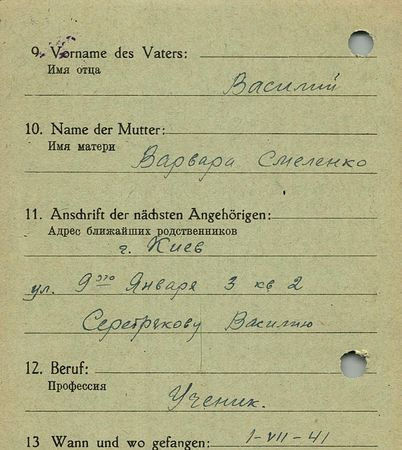 9. Vorname des Vaters:
Имя отца
Василий
10. Name der Mutter:
Имя матери
Варвара Смеленко
11. Anschrift der nächsten Angehörigen:
Адрес ближайших родственников
г. Киев
ул. 9го Января 3 кв 2
Василию
12. Beruf:
Профессия
Ученик.
13 Wann und wo gefangen: 1-VII-41